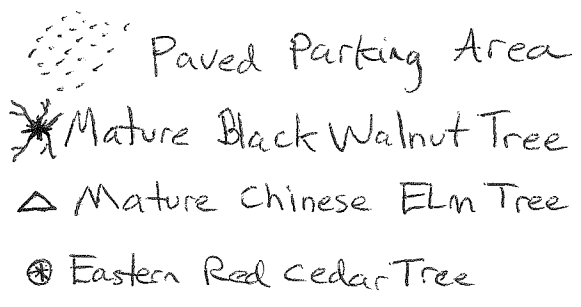 Paved Parking Area
Mature Black Walnut Tree
Mature Chinese ELm Tree
Eastern Red cedar Tree